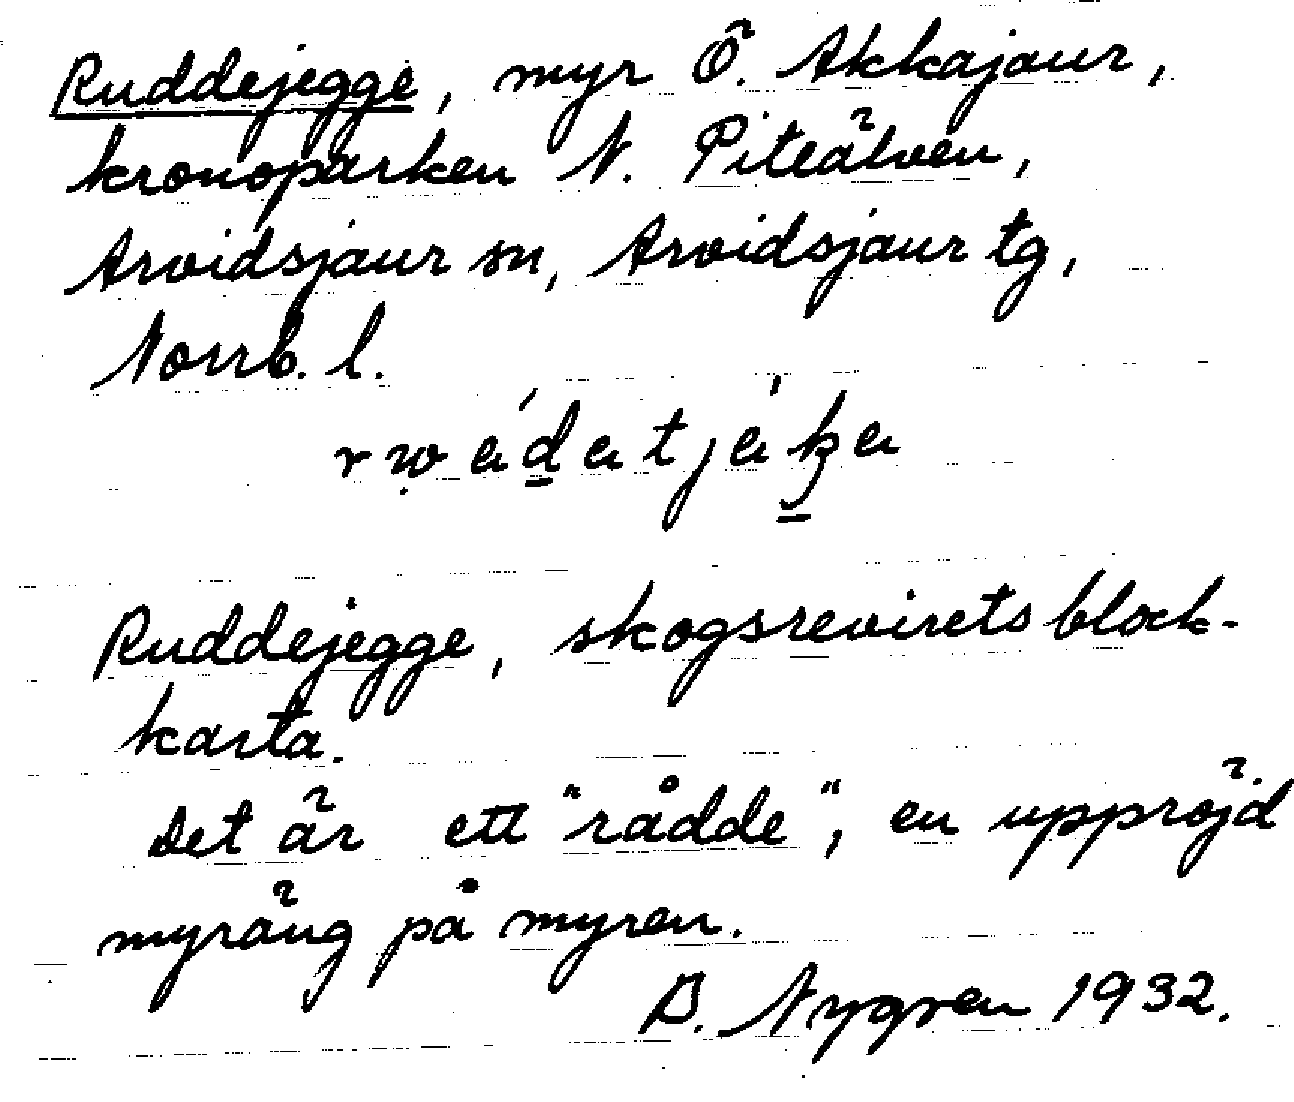 Ruddejegge, myr Ö. Akkajaur,
kronoparken N. Piteälven,
Arvidsjaur sn, Arvidsjaur tg,
Norrb. l.
Ruddejegge, skogsrevirets block-
karta.
Det är ett "rådde", en uppröjd
myräng på myren.
B. Nygren 1932.